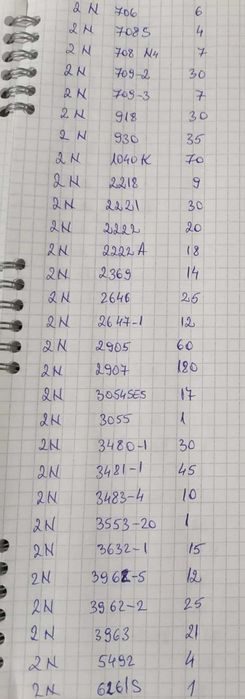 2N 706 6
2N 708S 4
2N 708 N4 7
2N 709-2 30
2N 709-3 7
2N 918 30
2N 930 35
2N 1040K 70
2N 2218 9
2N 2221 30
2N 2222 20
2N 2222A 18
2N 2369 14
2N 2646 25
2N 2647-1 12
2N 2905 60
2N 2907 180
2N 3054SES 17
2N 3055 1
2N 3480-1 30
2N 3481-1 45
2N 3483-4 10
2N 3553-20 1
2N 3632-1 15
2N 3962-5 12
2N 3962-2 25
2N 3963 21
2N 5492 4
2N 6261S 1